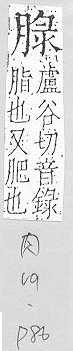 盧谷切音錄
脂也又肥也
肉
19
.
p86